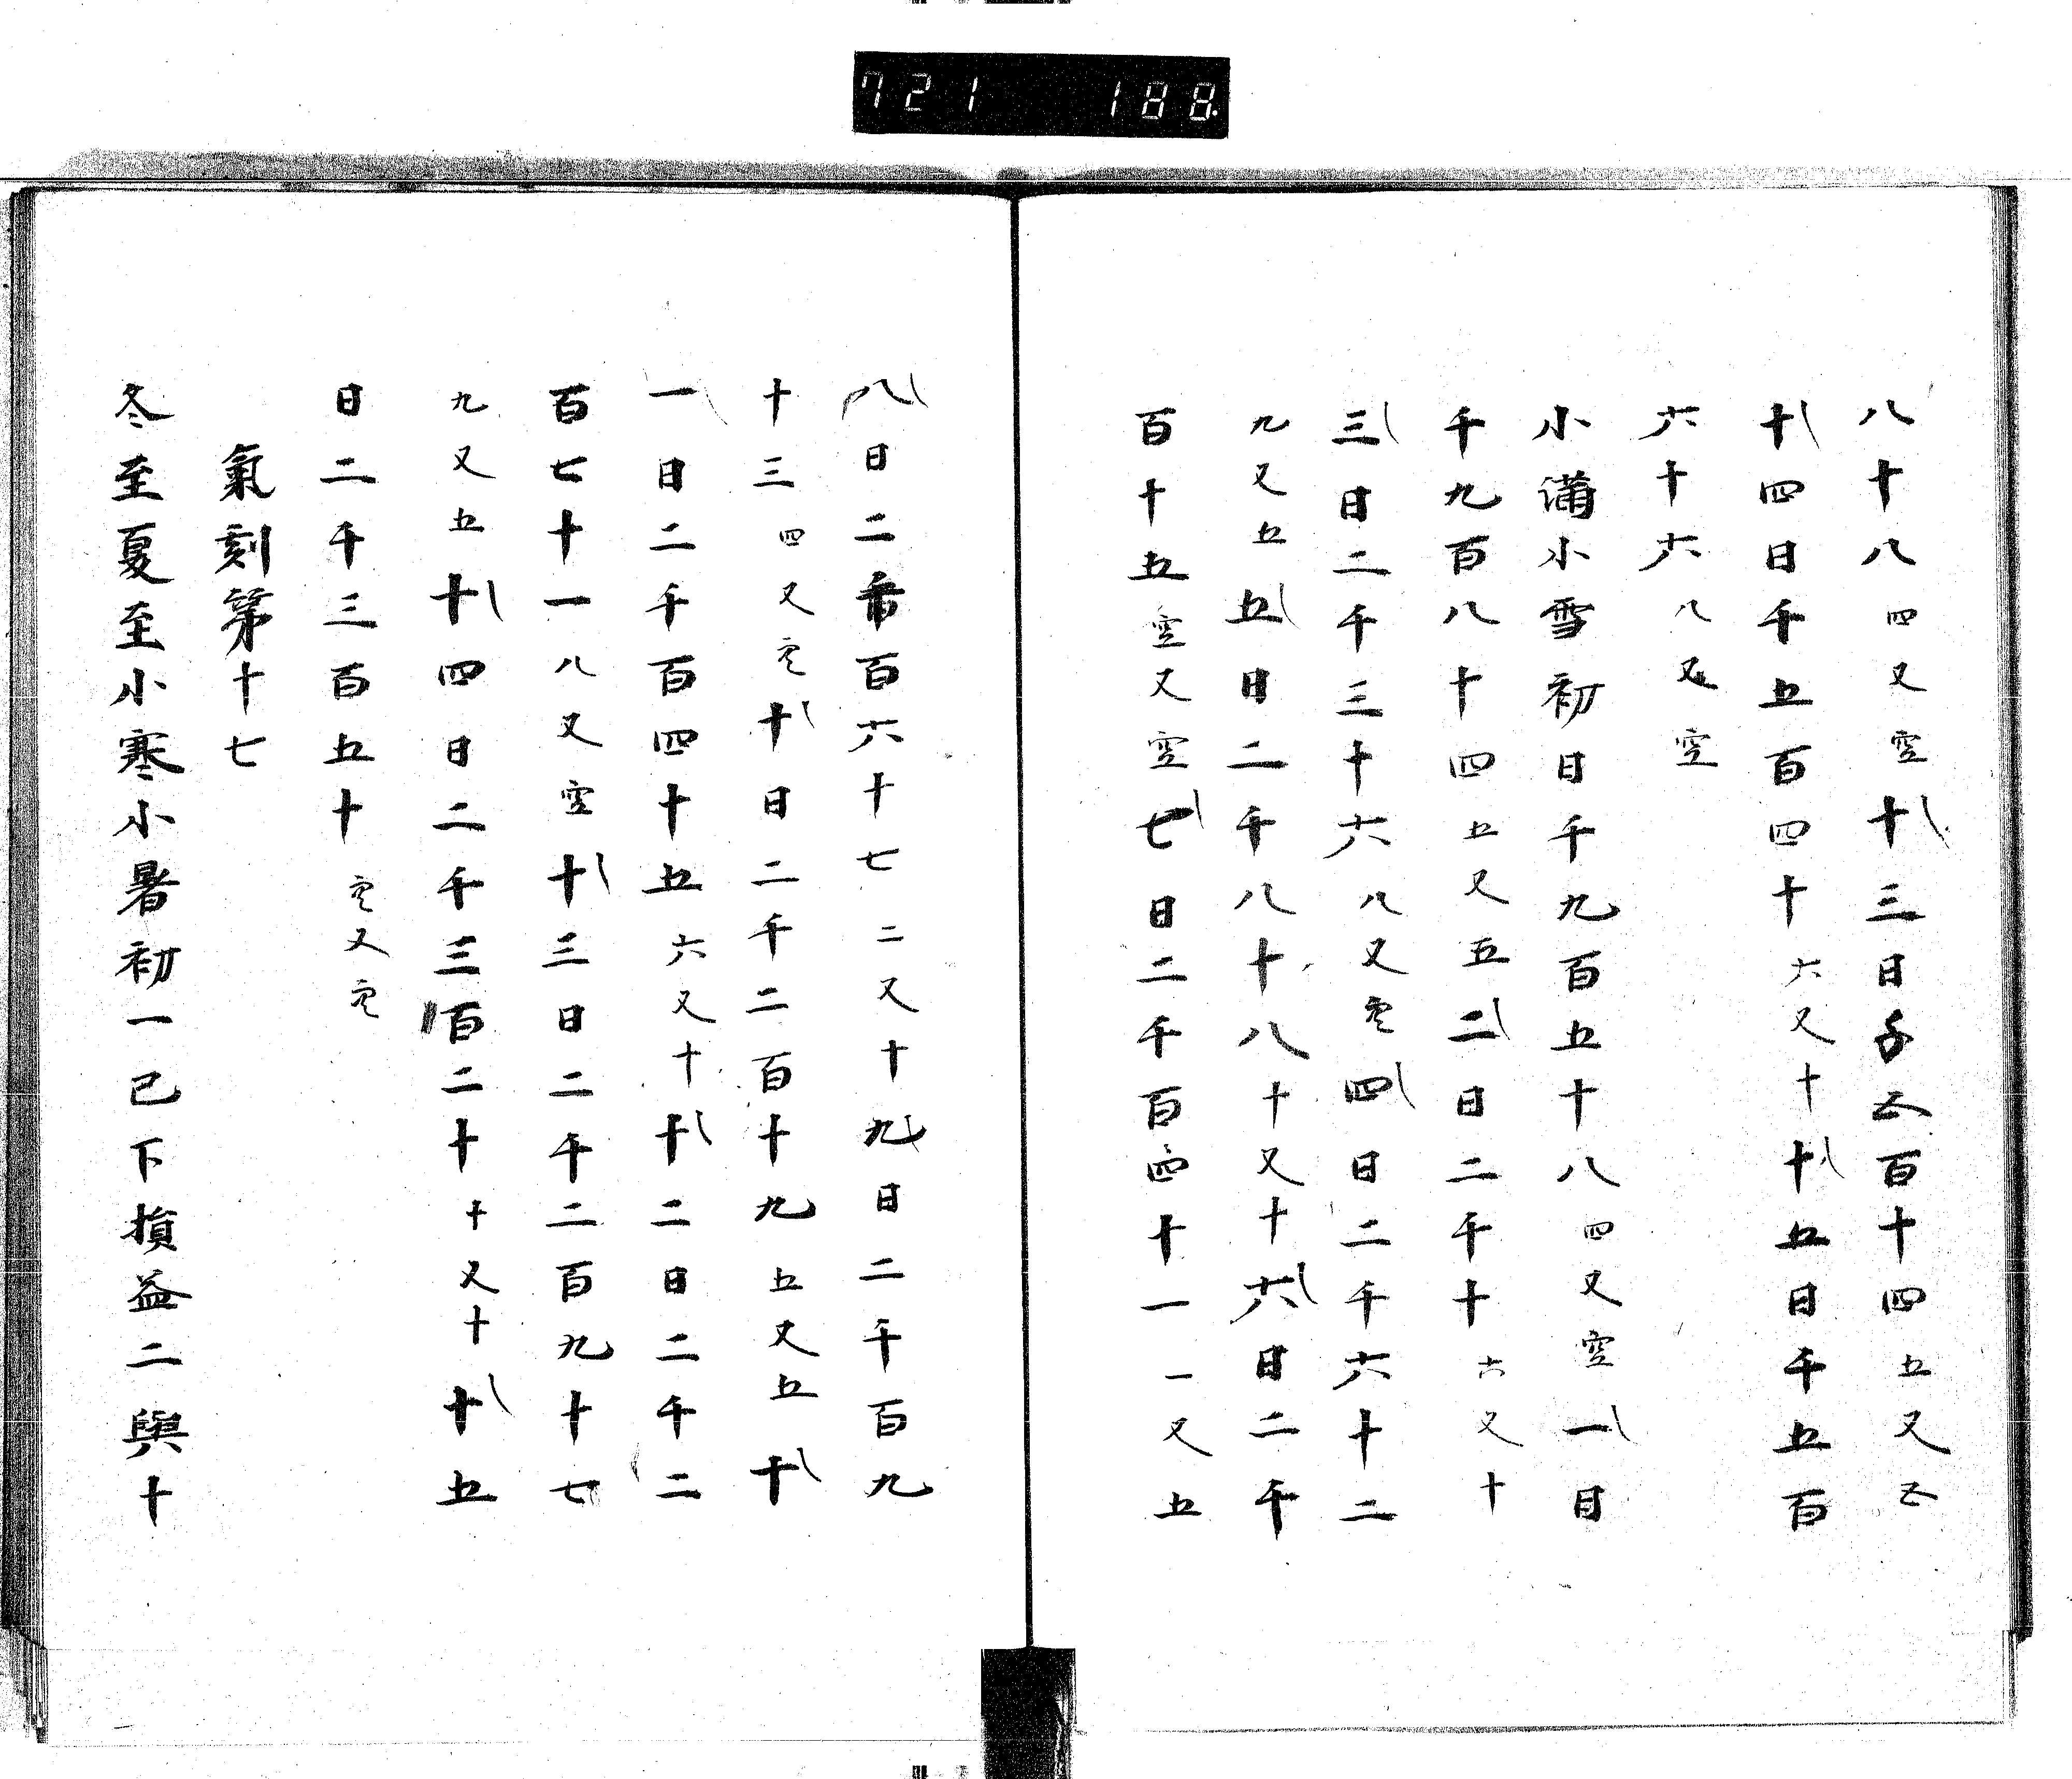 721 188
八十八四又空十三日千五百十四五又五
十四日千五百四十六又十十五日千五百
六十六八又空
小満小雪初日千九百五十八四又空一日
千九百八十四五又五二日二千十六又十
三日二千三十六八又空四日二千六十二
九又五五日二千八十八十又十六日二千
百十五空又空七日二千百四十一一又五
八日二千百六十七二又十九日二千百九
十三四又空十日二千二百十九五又五十
一日二千百四十五六又十十二日二千二
百七十一八又空十三日二千二百九十七
九又五十四日二千三百二十十又十十五
日二千三百五十空又空
氣刻第十七
冬至夏至小寒小暑初一已下損益二與十